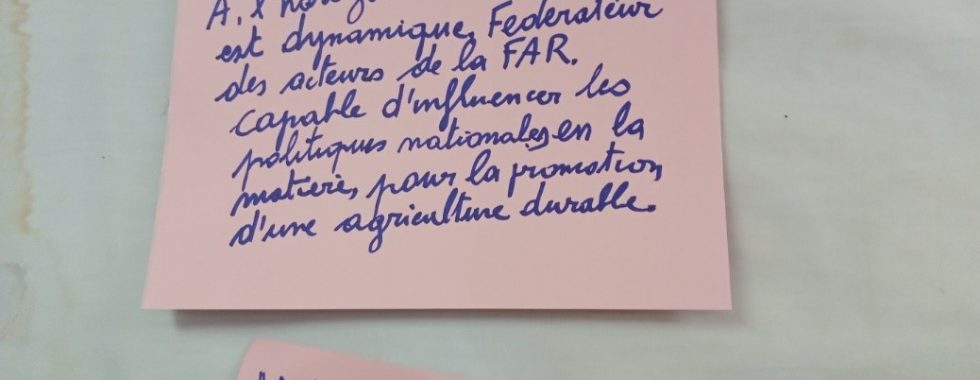 A, x
est dynamique, Federateur
des acteurs de la FAR.
capable d'influencer les
politiques nationales, en la
matiere, pour la promotion
d'une agriculture durable.